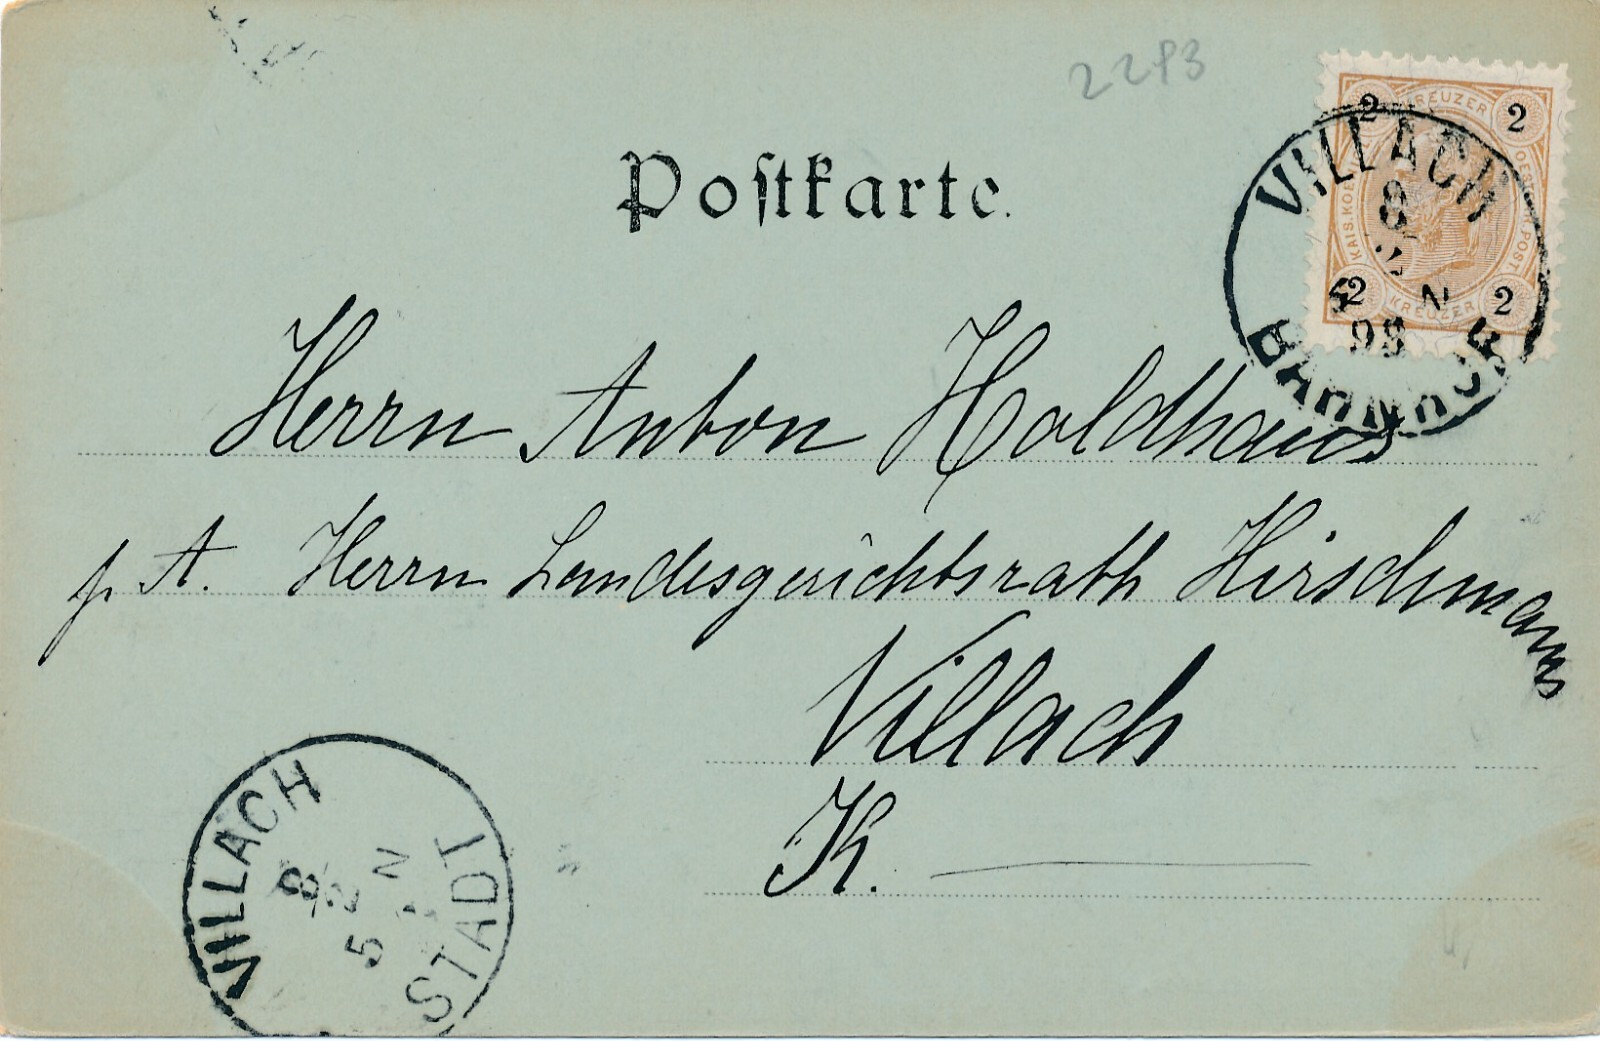 2293
Postkarte.
2 KREUZER 2
KAIS. KOEN. OESTERR. POST.
2 KREUZER 2
VILLACH
8
2
N
98
BAHNHOF
Herrn Anton Holdhaus
p. A. Herrn Landesgerichtsrath Hirschmann
Villach
K.
VILLACH
8
2
5 N
STADT